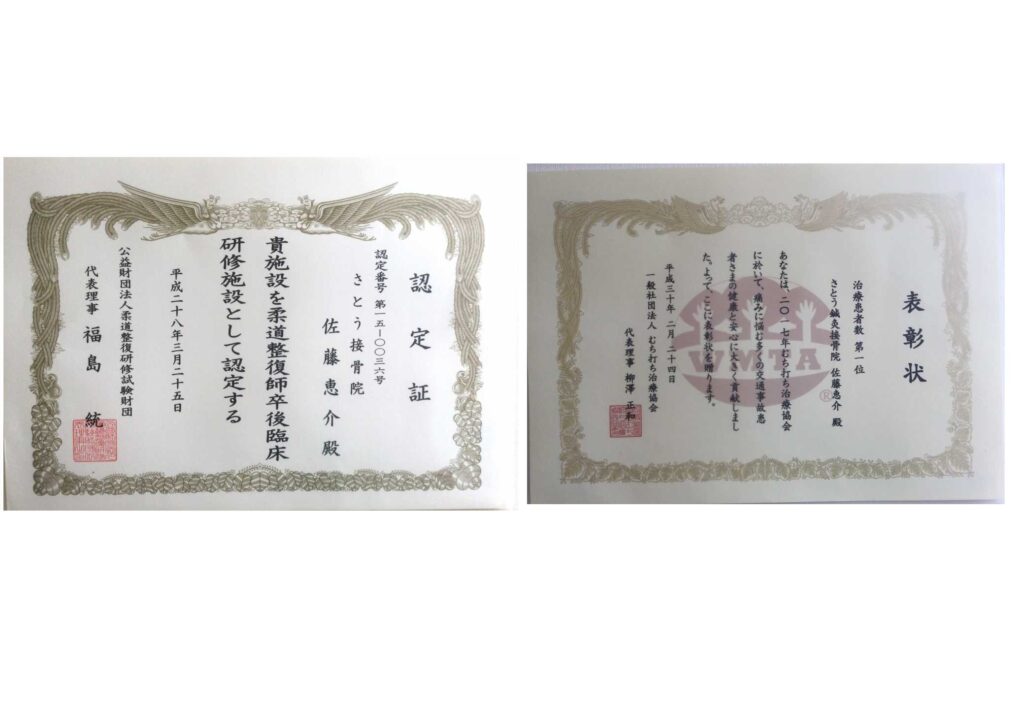 認定証
認定番号 第一五－〇〇三六号
さとう接骨院
佐藤恵介殿
貴施設を柔道整復師卒後臨床
研修施設として認定する
平成二十八年三月二十五日
公益財団法人柔道整復研修試験財団
代表理事 福島 統
表彰状
治療患者数 第一位
さとう鍼灸接骨院 佐藤恵介 殿
あなたは、二〇一七年むち打ち治療協会
に於いて、痛みに悩む多くの交通事故患
者さまの健康と安心に大きく貢献しまし
た。よって、ここに表彰状を贈ります。
平成三十年 二月 二十四日
一般社団法人 むち打ち治療協会
代表理事 柳澤 正和
WMTA
®